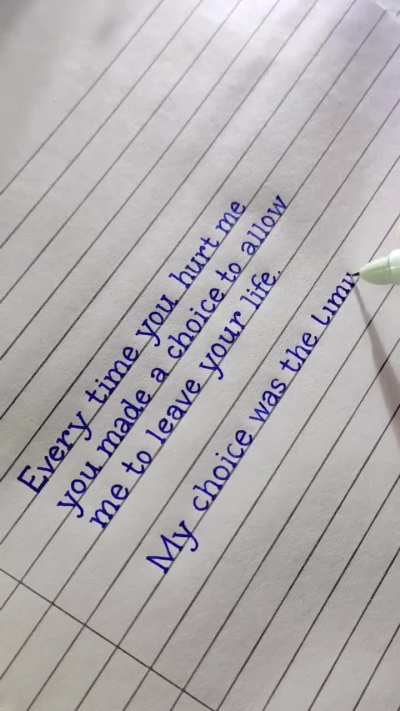 Every time you hurt me
you made a choice to allow
me to leave your life.
My choice was the